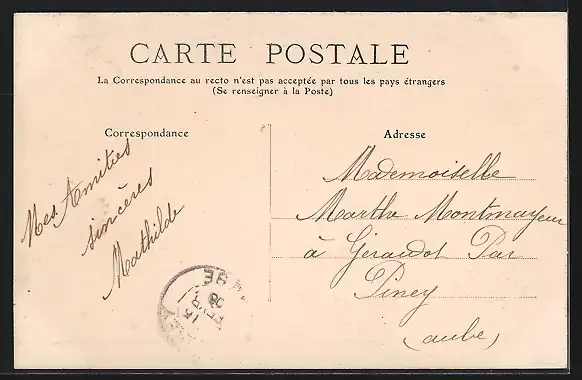 CARTE POSTALE
La Correspondance au recto n'est pas acceptée par tous les pays étrangers
(Se renseigner à la Poste)
Correspondance
Mes Amitiés
sincères
Mathilde
Adresse
Mademoiselle
Marthe Montmayeur
à Geraudot Par
Piney
(aube)
15
FEVR